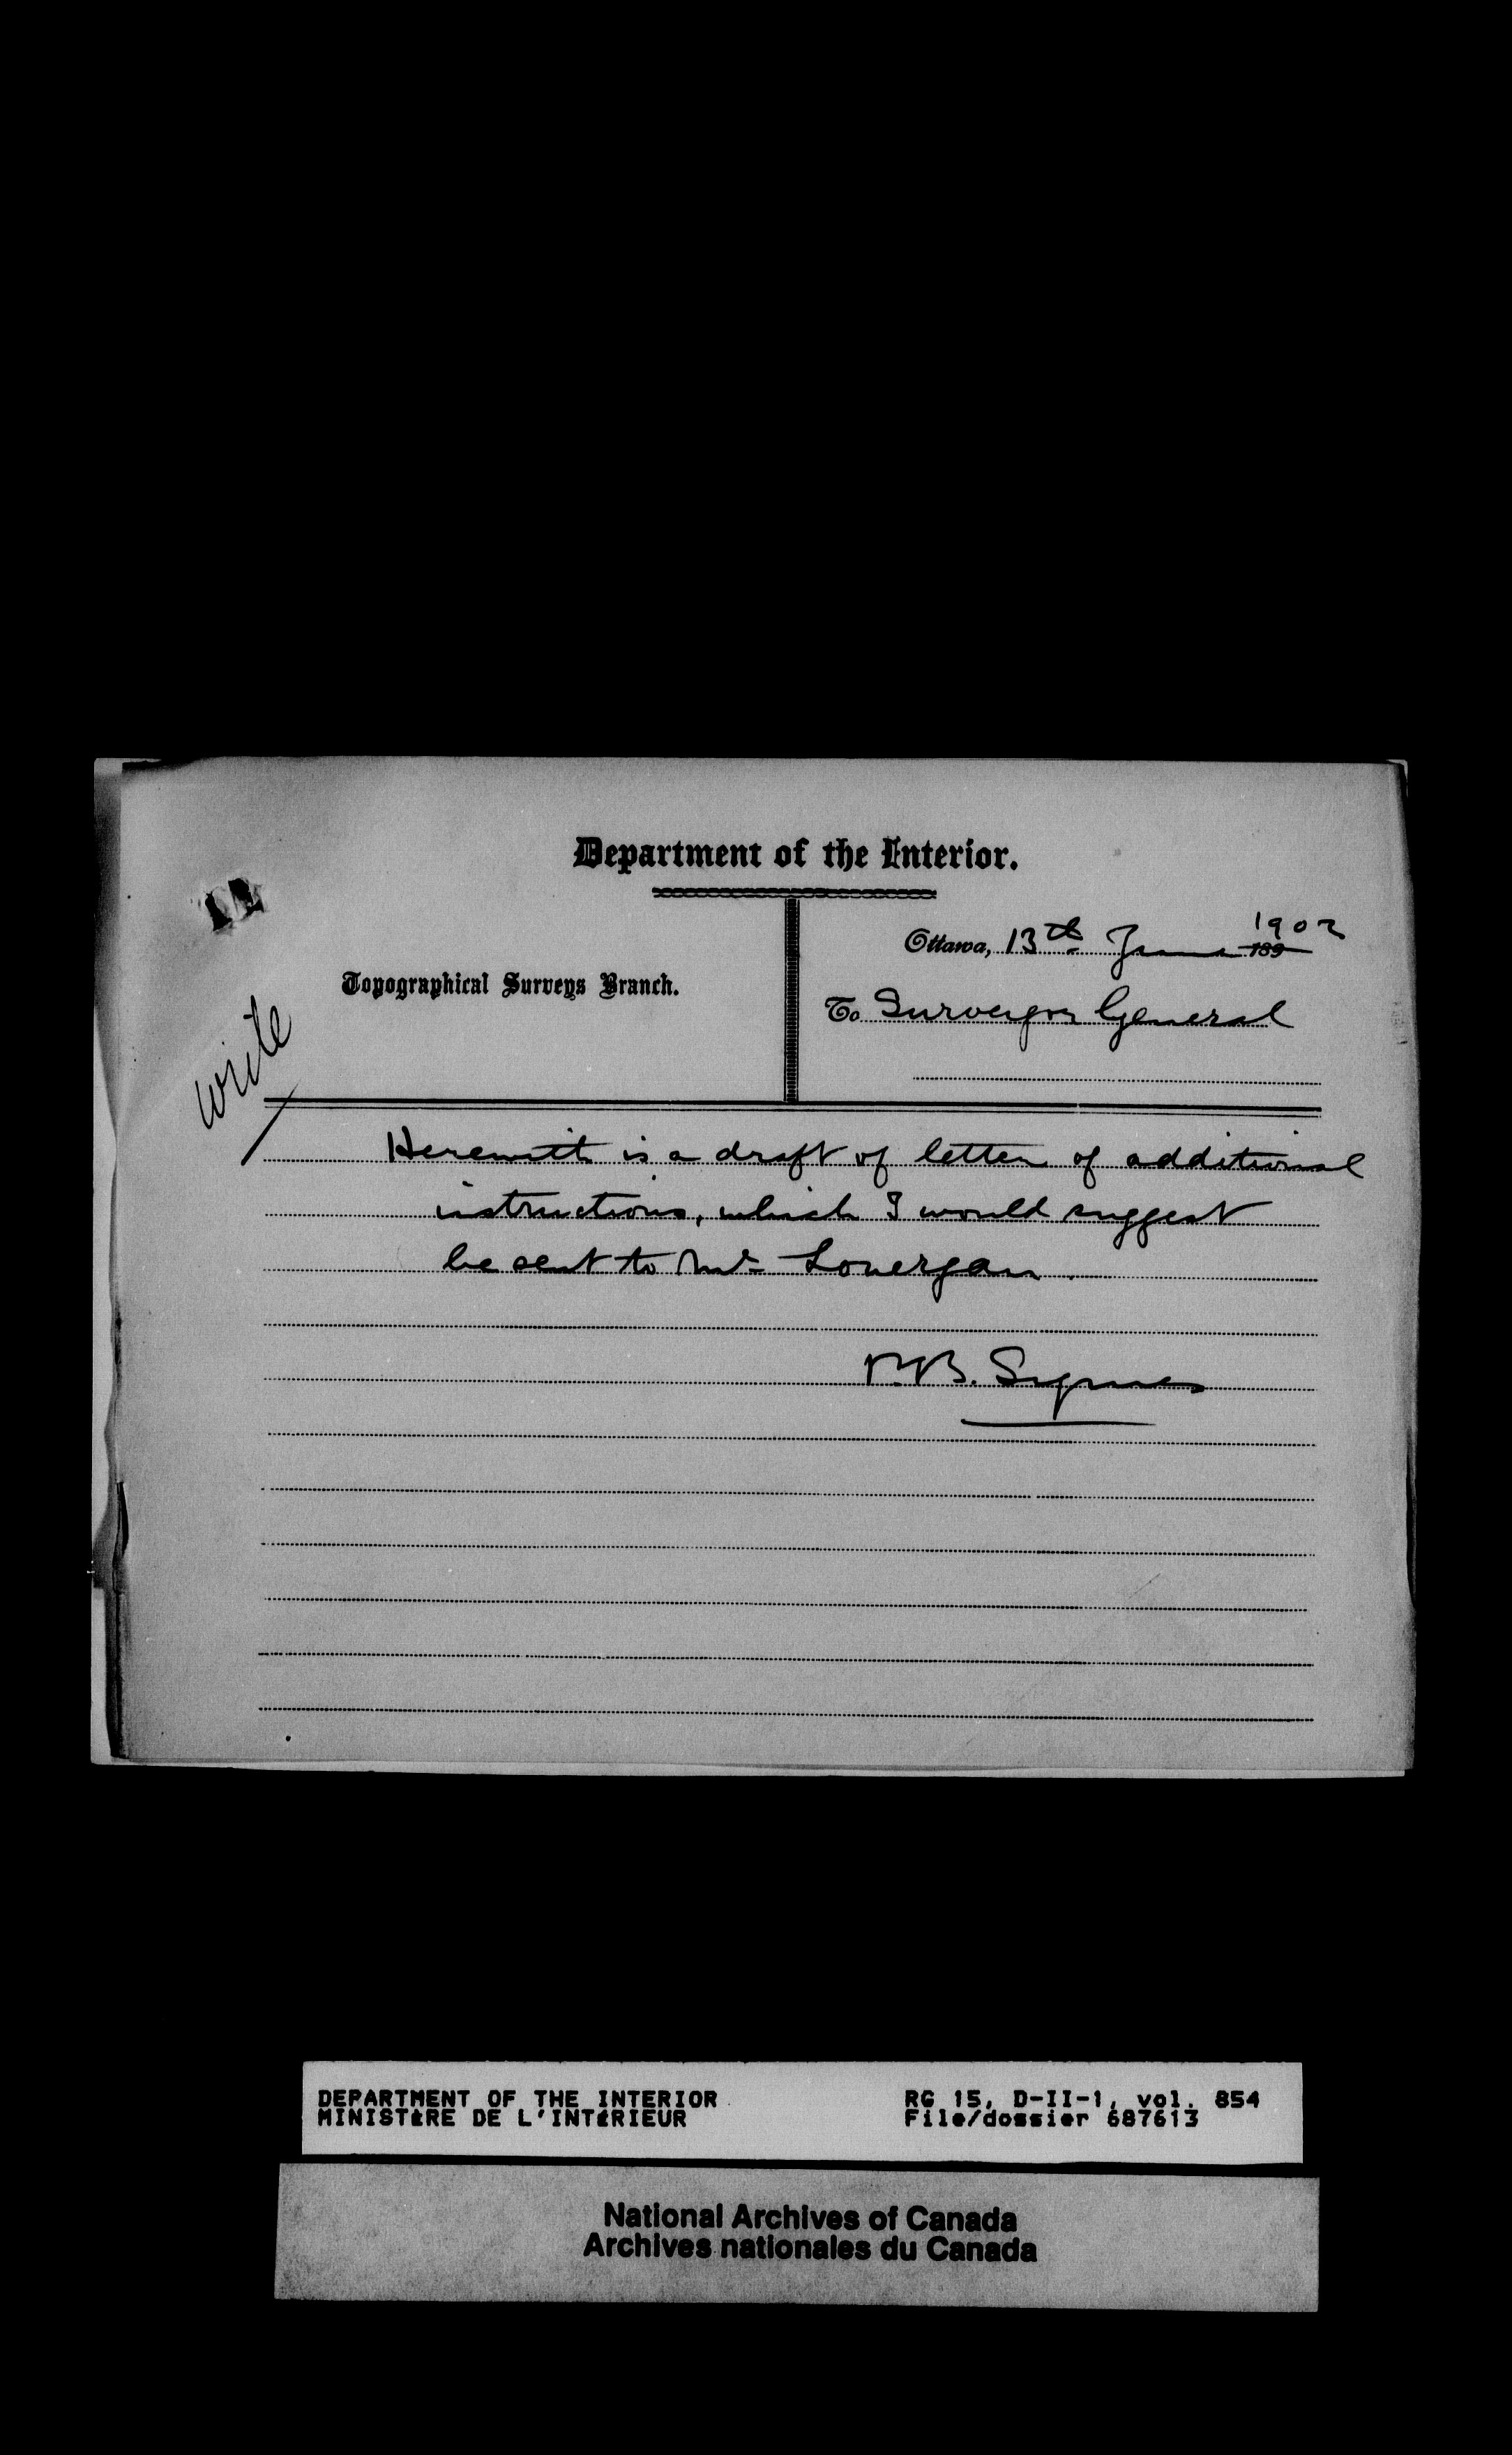 Department of the Interior.
Ottawa, 13th June 1902
189
Topographical Surveys Branch.
To Surveyor General
write
Herewith is a draft of letter of additional
instructions, which I would suggest
be sent to Mr. Lonergan.
P.B. Symes
DEPARTMENT OF THE INTERIOR
MINISTÈRE DE L'INTÉRIEUR
RG 15, D-II-1, vol. 854
File/dossier 687613
National Archives of Canada
Archives nationales du Canada